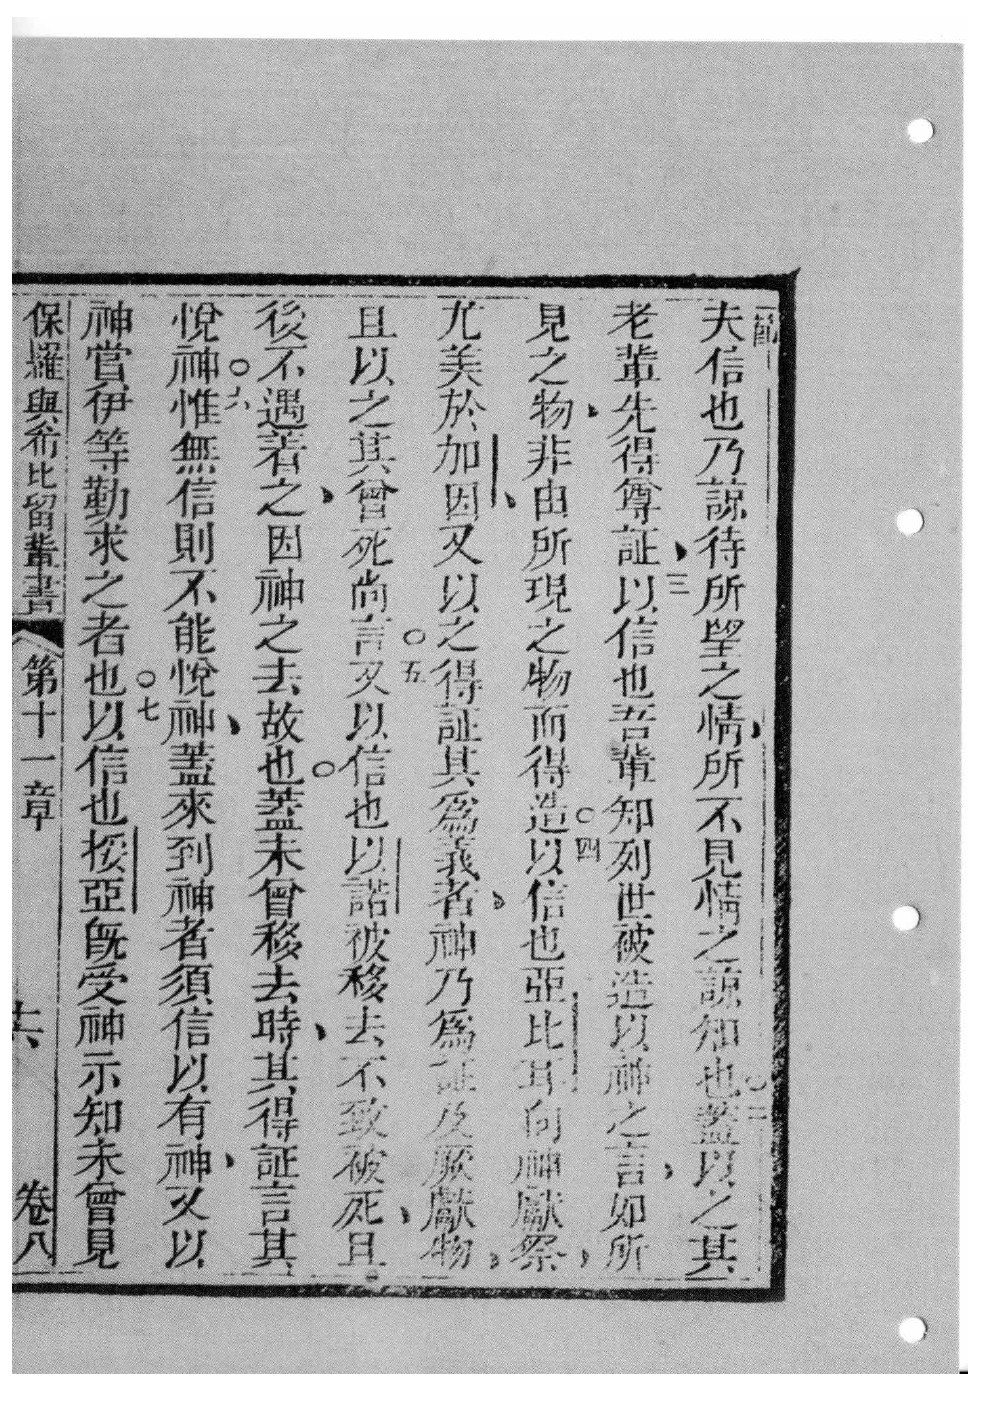 夫信也乃諒待所望之情所不見情之諒知也○二蓋以之其
老輩先得尊証三以信也吾輩知列世被造以神之言如所
見之物非由所現之物而得造○四以信也亞比耳向神獻祭
尤美於加因又以之得証其為義者神乃為証及厥獻物
且以之其曾死尚言○五又以信也以諾被移去不致被死且
後不遇著之因神之去故也蓋未曾移去時其得証言其
悅神○六惟無信則不能悅神蓋來到神者須信以有神又以
神當伊等勤求之者也○七以信也挼亞旣受神示知未曾見
保羅與希比留輩書 第十一章 六 卷八